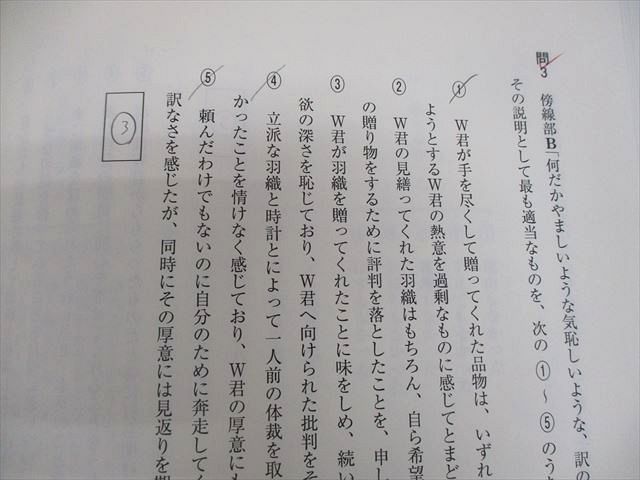 問3 傍線部B「何だかやましいような気恥しいような、訳の
その説明として最も適当なものを、次の①～⑤のう
① W君が手を尽くして贈ってくれた品物は、いずれ
ようとするW君の熱意を過剰なものに感じてとまど
② W君の見繕ってくれた羽織はもちろん、自ら希望
の贈り物をするために評判を落としたことを、申し
③ W君が羽織を贈ってくれたことに味をしめ、続い
欲の深さを恥じており、W君へ向けられた批判をそ
④ 立派な羽織と時計とによって一人前の体裁を取
かったことを情けなく感じており、W君の厚意にも
⑤ 頼んだわけでもないのに自分のために奔走してく
訳なさを感じたが、同時にその厚意には見返りを
③